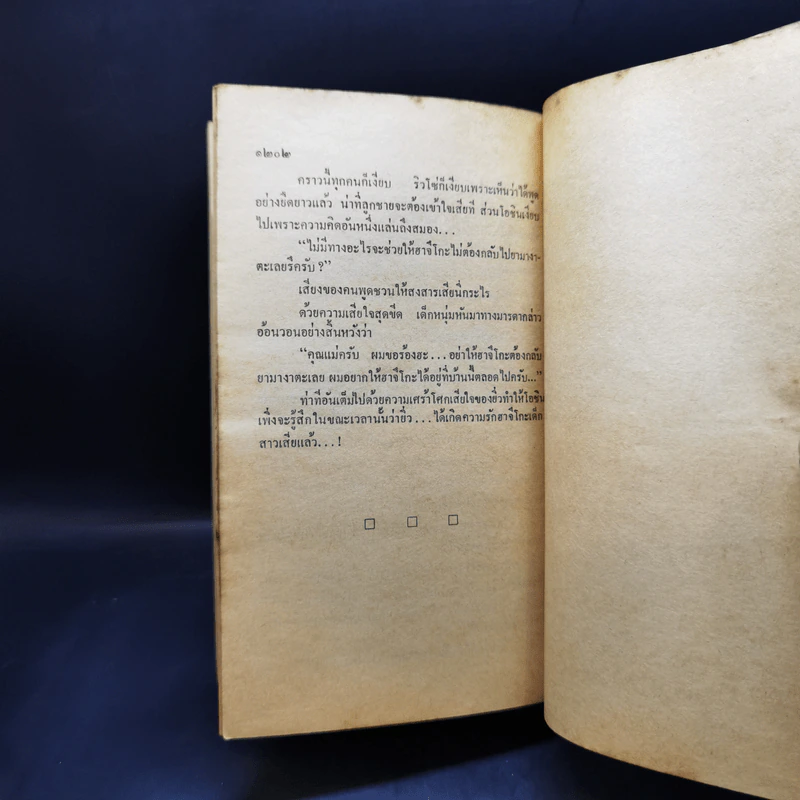 ๑๒๐๒
คราวนี้ทุกคนก็เงียบ ริวโซ่ก็เงียบเพราะเห็นว่าได้พูด
อย่างยืดยาวแล้ว น่าที่ลูกชายจะต้องเข้าใจเสียที ส่วนโอชินเงียบ
ไปเพราะความคิดอันหนึ่งแล่นถึงสมอง...
“ไม่มีทางอะไรจะช่วยให้ฮาจึโกะไม่ต้องกลับไปยามางา-
ตะเลยรึครับ?”
เสียงของคนพูดชวนให้สงสารเสียนี่กระไร
ด้วยความเสียใจสุดขีด เด็กหนุ่มหันมาทางมารดากล่าว
อ้อนวอนอย่างสิ้นหวังว่า
“คุณแม่ครับ ผมขอร้องฮะ...อย่าให้ฮาจึโกะต้องกลับ
ยามางาตะเลย ผมอยากให้ฮาจึโกะได้อยู่ที่บ้านนี้ตลอดไปครับ...”
ท่าทีอันเต็มไปด้วยความเศร้าโศกเสียใจของยิ่วทำให้โอชิน
เพิ่งจะรู้สึกในขณะเวลานั้นว่ายิ่ว...ได้เกิดความรักฮาจึโกะเด็ก
สาวเสียแล้ว...!